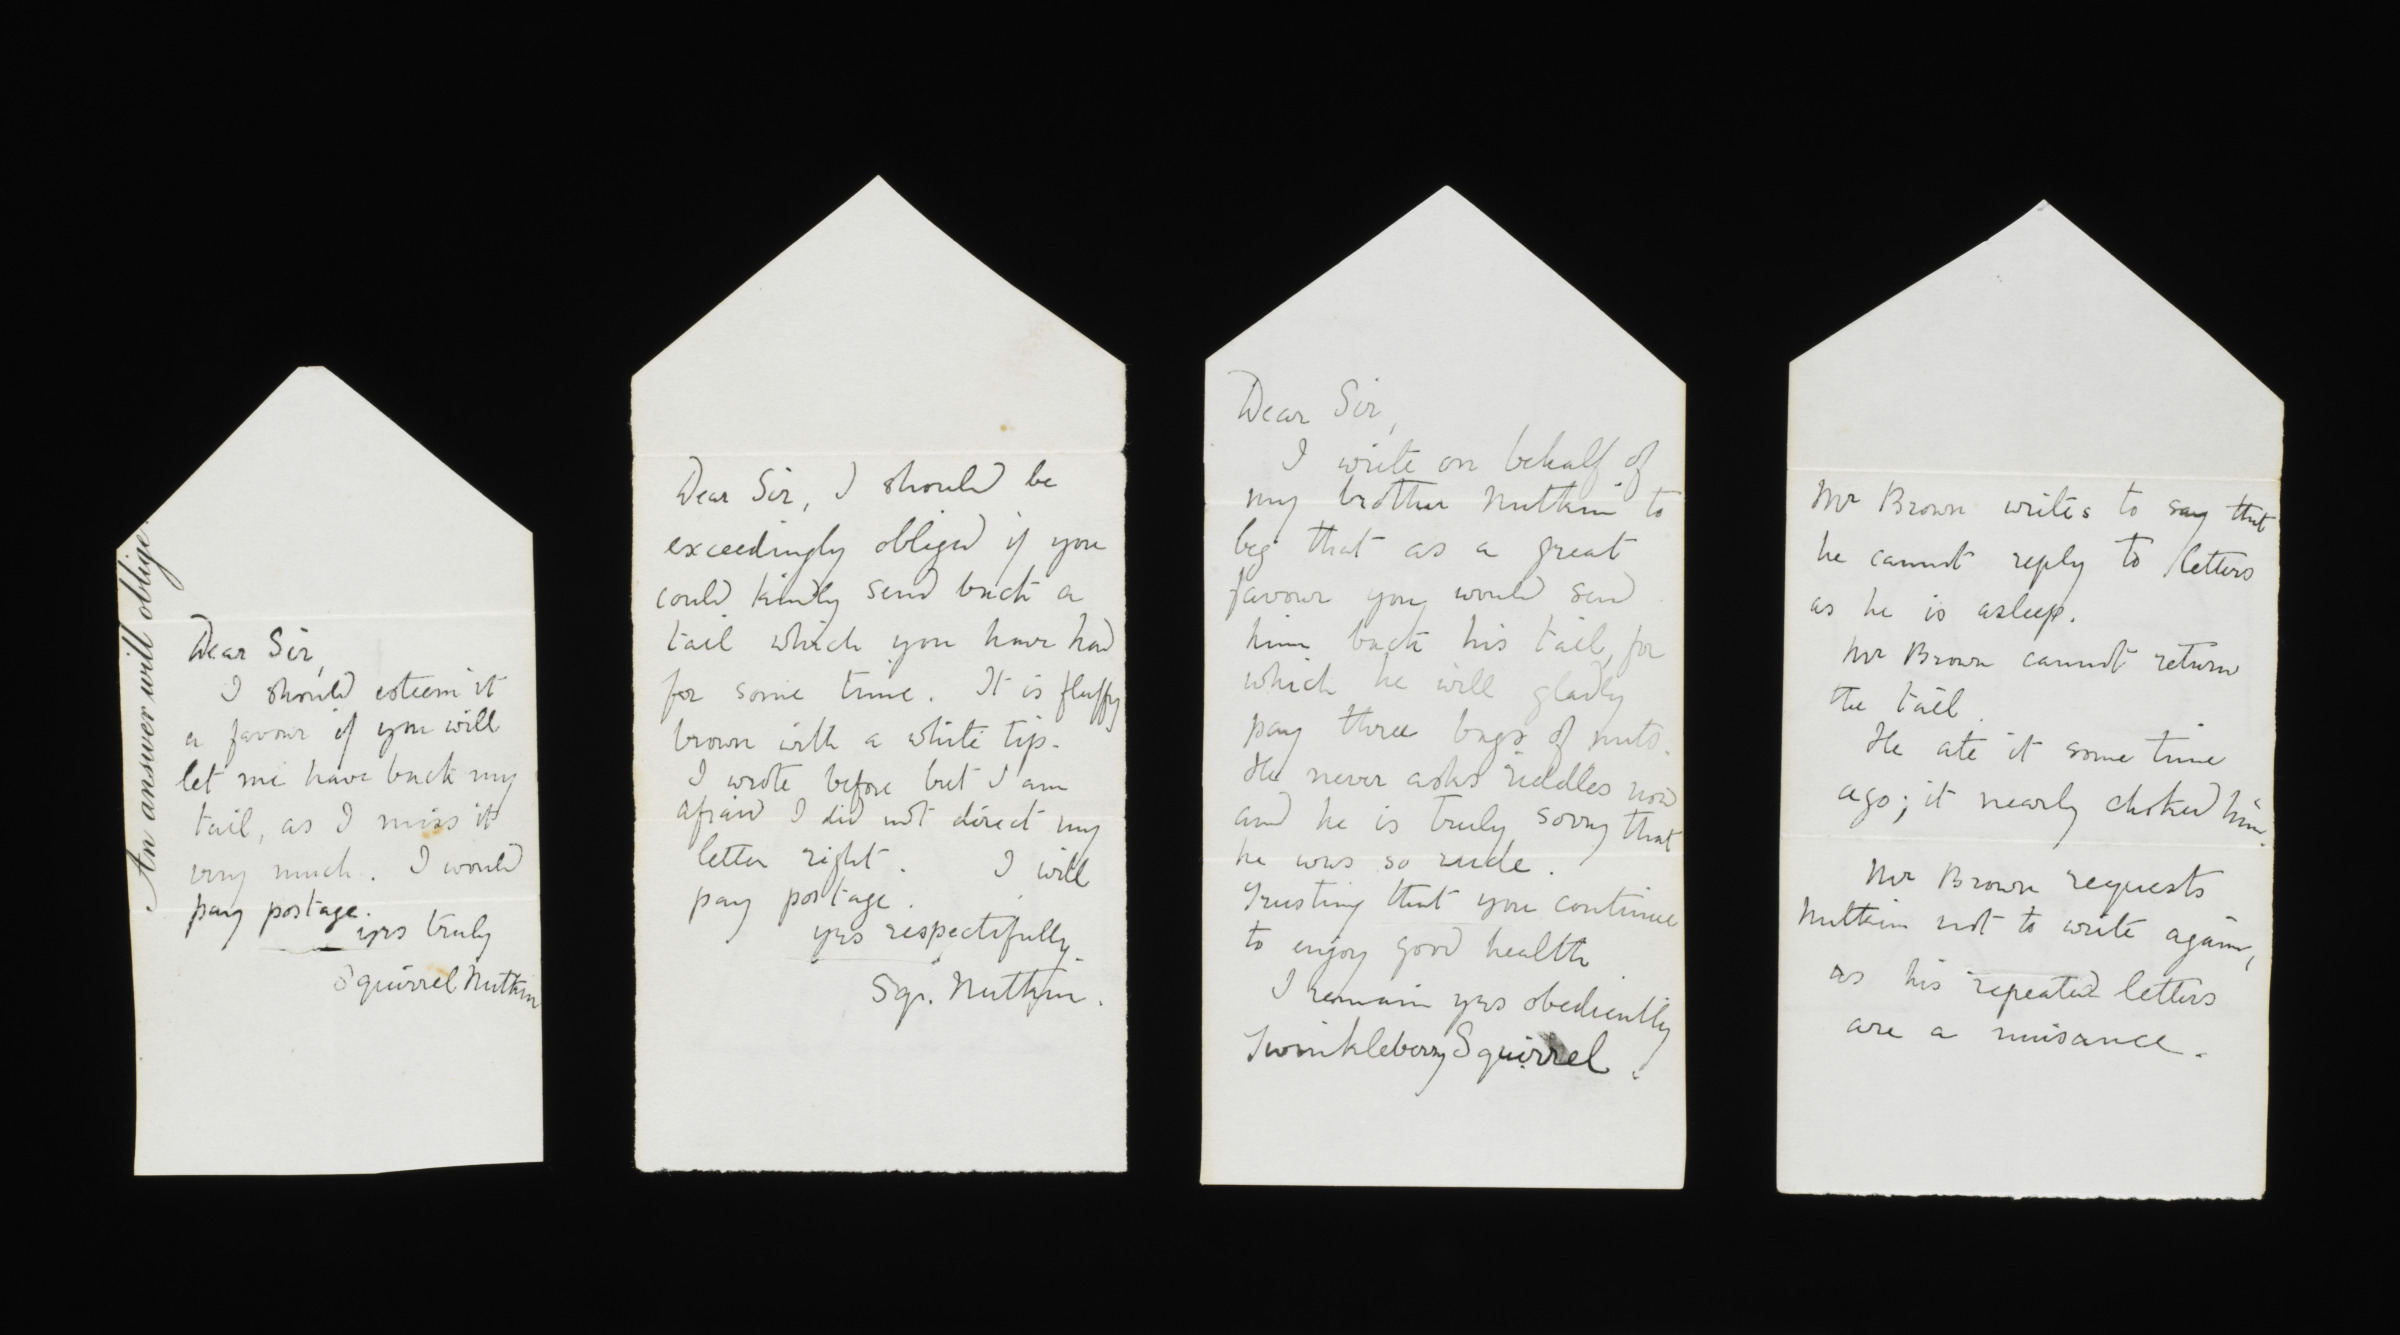 An answer will oblige.
Dear Sir,
I should esteem it
a favour if you will
let me have back my
tail, as I miss it
very much. I would
pay postage.
yrs truly
Squirrel Nutkin
Dear Sir, I should be
exceedingly obliged if you
could kindly send back a
tail which you have had
for some time. It is fluffy
brown with a white tip.
I wrote before but I am
afraid I did not direct my
letter right. I will
pay postage.
yrs respectifully
Sqr. Nutkin.
Dear Sir,
I write on behalf of
my brother Nutkin to
beg that as a great
favour you would send
him back his tail, for
which he will gladly
pay three bags of nuts.
He never asks riddles now
and he is truly sorry that
he was so rude.
Trusting that you continue
to enjoy good health
I remain yrs obediently
Twinkleberry Squirrel.
Mr Brown writes to say that
he cannot reply to letters
as he is asleep.
Mr Brown cannot return
the tail.
He ate it some time
ago; it nearly choked him.
Mr Brown requests
Nutkin not to write again,
as his repeated letters
are a nuisance.